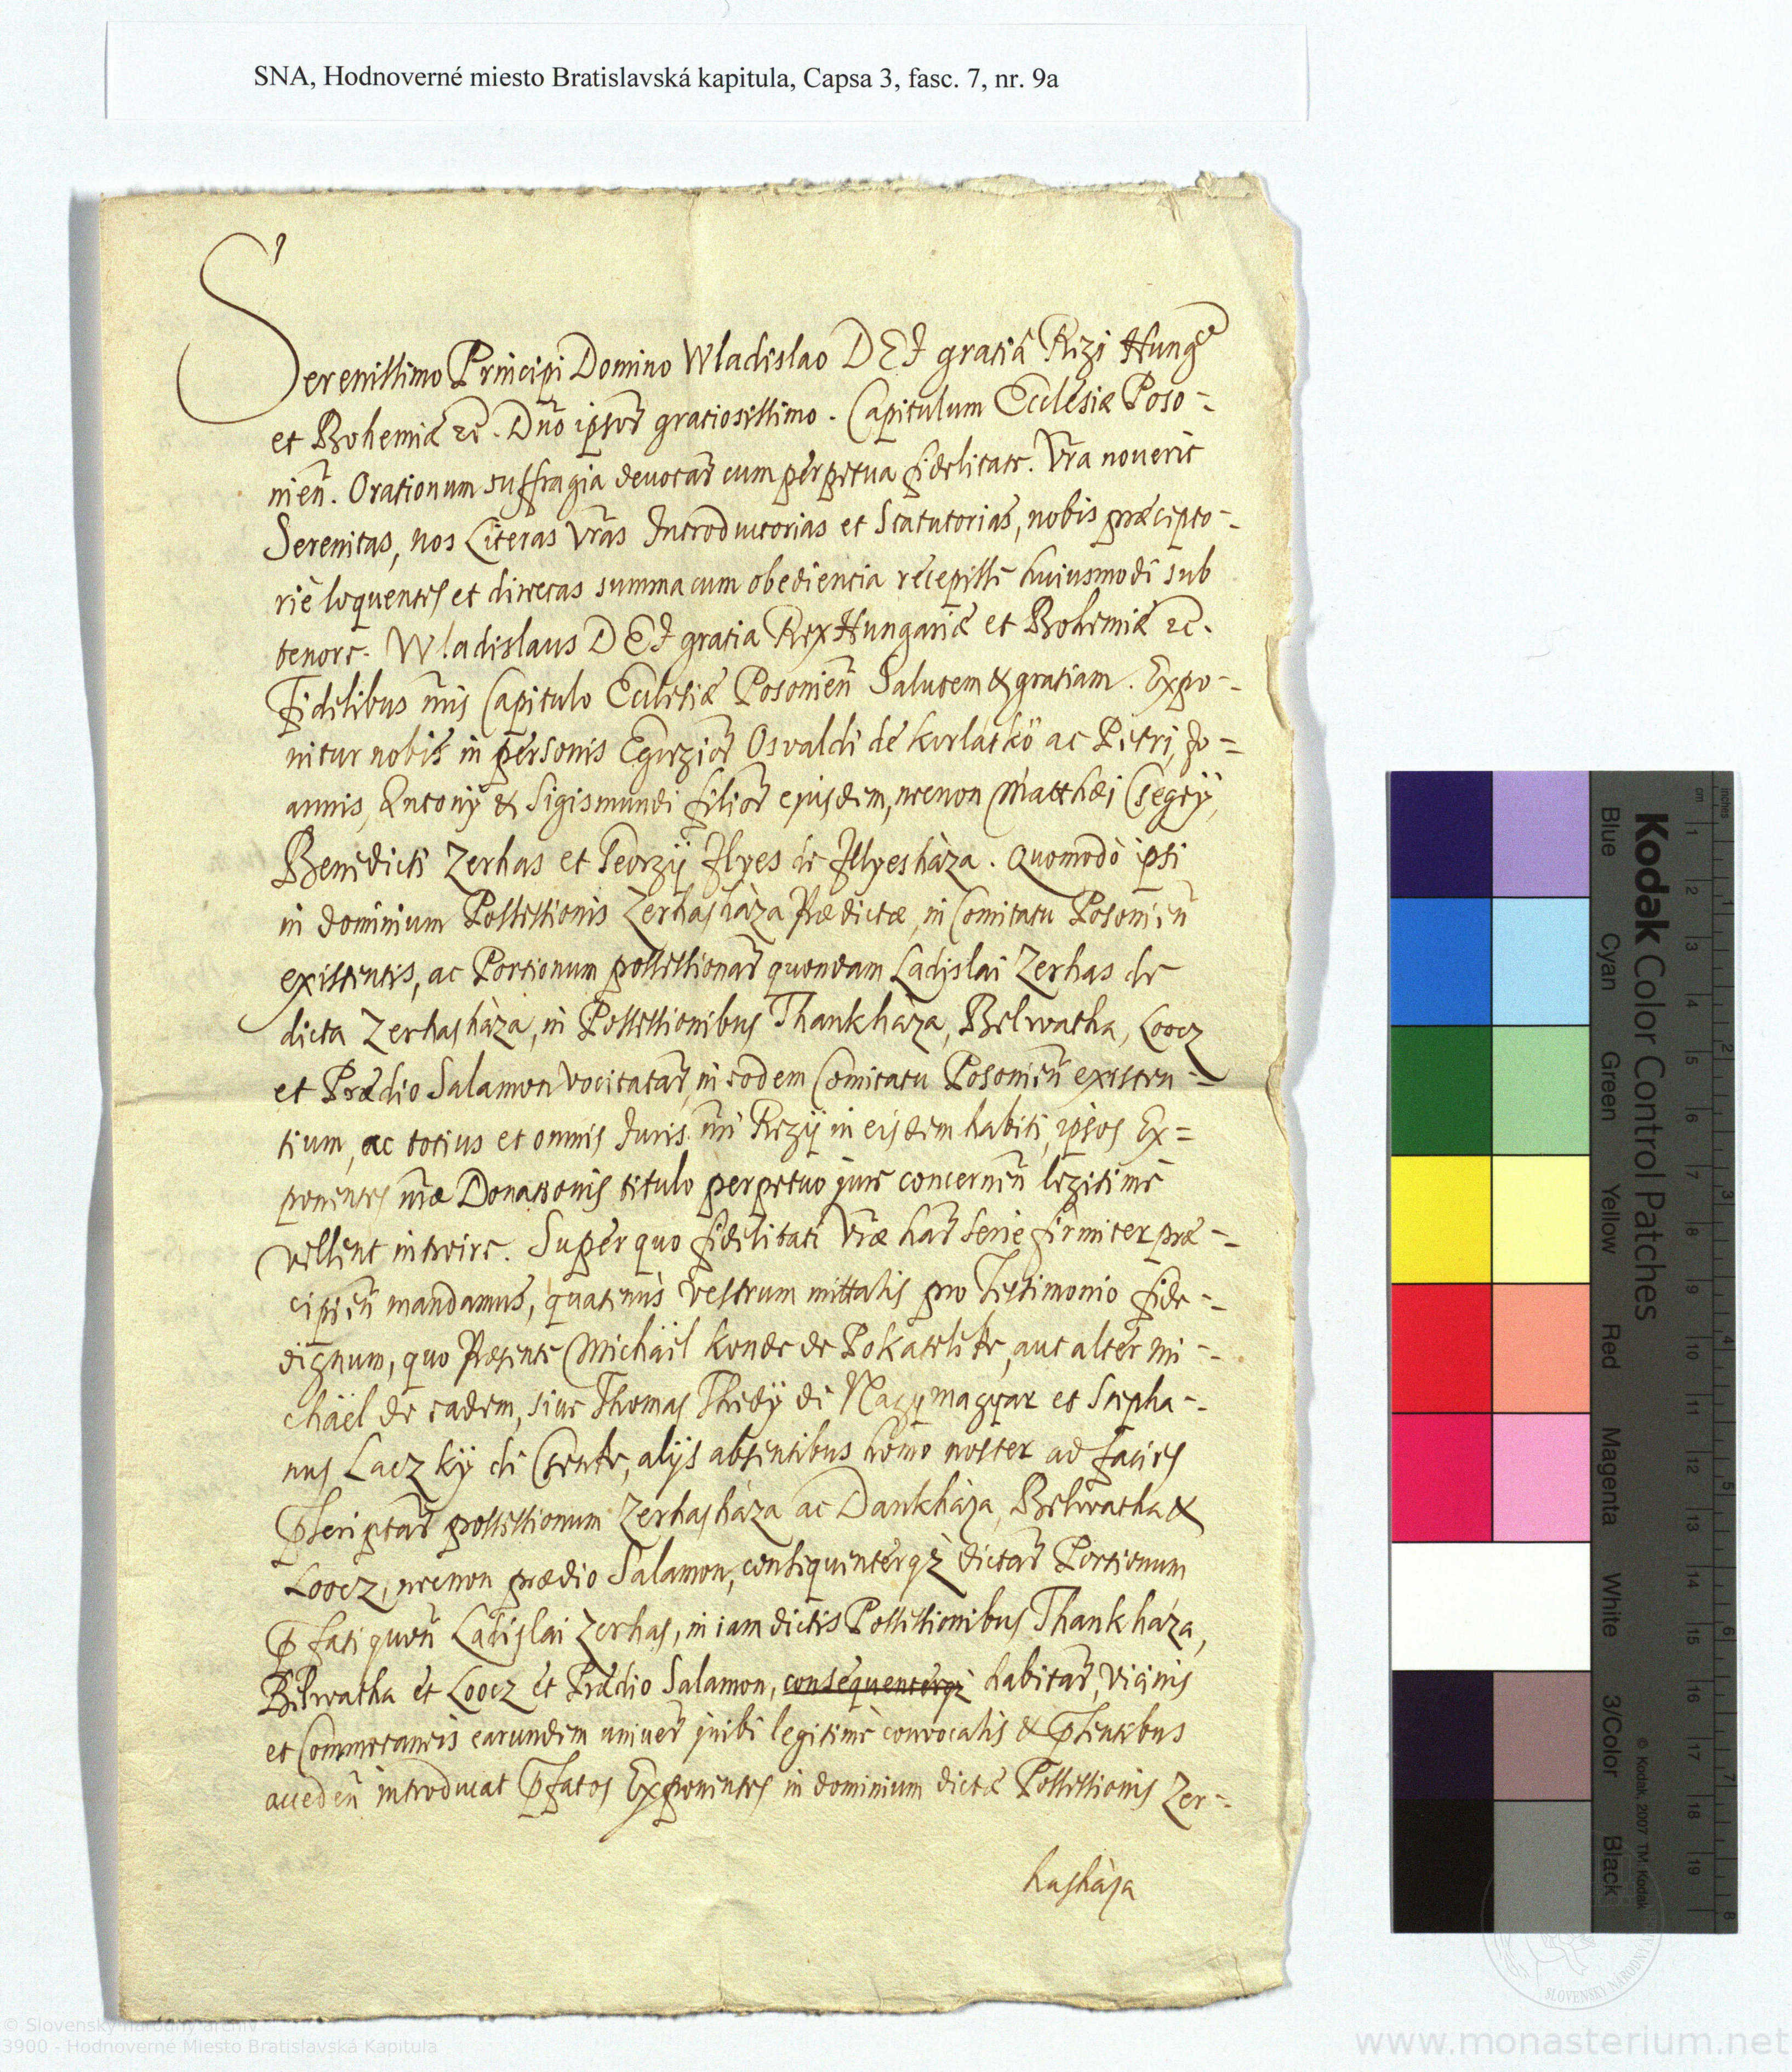 SNA, Hodnoverné miesto Bratislavská kapitula, Capsa 3, fasc. 7, nr. 9a
Serenissimo Principi Domino Wladislao DEI gratiâ Regi Hungae
et Bohemiæ etc. Dno ipsor gratiosissimo. Capitulum Ecclesiæ Poso-
nien. Orationum suffragia devotar cum perpetua fidelitate. Vra noverit
Serenitas, nos Literas Vras Introductorias et Statutorias, nobis præcipto-
riè loquentes et directas summa cum obediencia recepisse huiusmodi sub
tenore. Wladislaus DEI gratia Rex Hungariæ et Bohemiæ etc.
Fidelibus nris Capitulo Ecclesiæ Posonien Salutem & gratiam. Expo-
nitur nobis in personis Egregior Osvaldi de Korlatkö ac Petri, Jo=
annis, Antonij & Sigismundi filior ejusdem, necnon Matthæi Csegey,
Benedicti Zerhas et Georgij Ilyes de Illyesháza. Quomodò ipsi
in dominium Possessionis Zerhasháza Prædictæ, in Comitatu Posonien
existentis, ac Portionum possessionar quondam Ladislai Zerhas de
dicta Zerhasháza, in Possessionibus Thankháza, Belwatha, Loocz
et Prædio Salamon vocitatar, in eodem Comitatu Posonien existen=
tium, ac totius et omnis Juris nri Regij in eisdem habiti, ipsos Ex=
ponentes nræ Donationis titulo perpetuo jure concernen legitime
vellent introire. Super quo fidelitati Vræ har serie firmiter præ-
cipien mandamus, quatenus Vestrum mittatis pro Testimonio fide-
dignum, quo Præsente Michäel Konde de Pokateleke, aut alter Mi-
chäel de eadem, sive Thomas Thedÿ de Nagymagyar et Stepha-
nus Laczkÿ de Csente, alijs absentibus homo noster ad facies
pscriptar possessionum Zerhasháza ac Dankháza, Belwatha &
Loocz, necnon prædio Salamon, consequenterqz dictar Portionum
pfati quon Ladislai Zerhas, in iam dictis Possessionibus Thankháza,
Belwatha et Loocz et Prædio Salamon, consequenterqz habitar, Vicinis
et Commetaneis earundem univer inibi legitime convocatis & psentibus
acceden introducat pfatos Exponentes in dominium dictæ Possessionis Zer-
hasháza
Kodak Color Control Patches
Blue
Cyan
Green
Yellow
Red
Magenta
White
3/Color
Black
© Kodak, 2007 TM: Kodak
cm
inches
1 2 3 4 5 6 7 8 9 10 11 12 13 14 15 16 17 18 19
1 2 3 4 5 6 7 8
© Slovenský národný archív
3900 - Hodnoverné Miesto Bratislavská Kapitula
www.monasterium.net